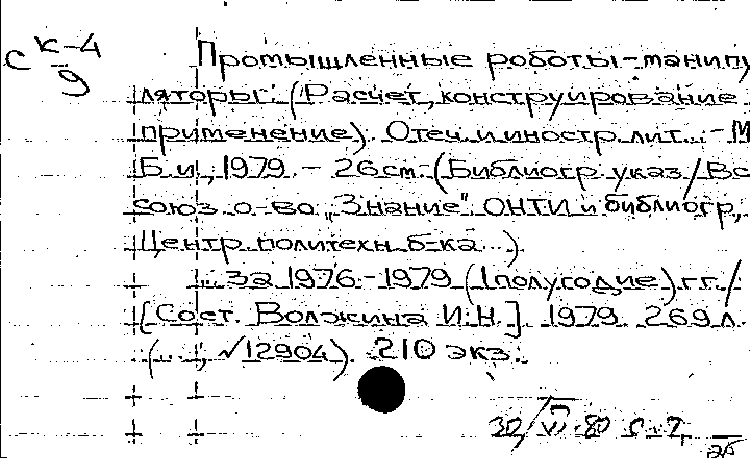 с К-4
9
Промышленные роботы-манипу
ляторы: (Расчет, конструирование
применение). Отеч. и иностр. лит... - М
Б и, 1979. - 26 см. - (Библиогр. указ. / Вс
союз. о-во „Знание". ОНТИ и библиогр,
Центр. политехн. б-ка...)
... за 1976.-1979 (1 полугодие) гг. /
[Сост. Волжина И.Н.]. 1979. 269 л.
(..., √12904). 210 экз.
30/VI-80